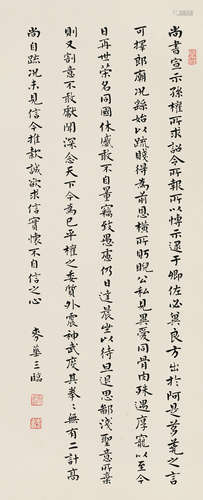 尚書宣示孫權所求詔令所報所以博示逮于卿佐必冀良方出於阿是芻蕘之言
可擇郎廟況繇始以疏賤得為前恩橫所盱睨公私見異愛同骨肉殊遇厚寵以至今
日再世榮名同國休慼敢不自量竊致愚慮仍日達晨坐以待旦退思鄙淺聖意所棄
則又割意不敢獻聞深念天下今為已平權之委質外震神武度其拳〻無有二計高
尚自疏況未見信今推款誠欲求信實懷不自信之心
麥華三臨